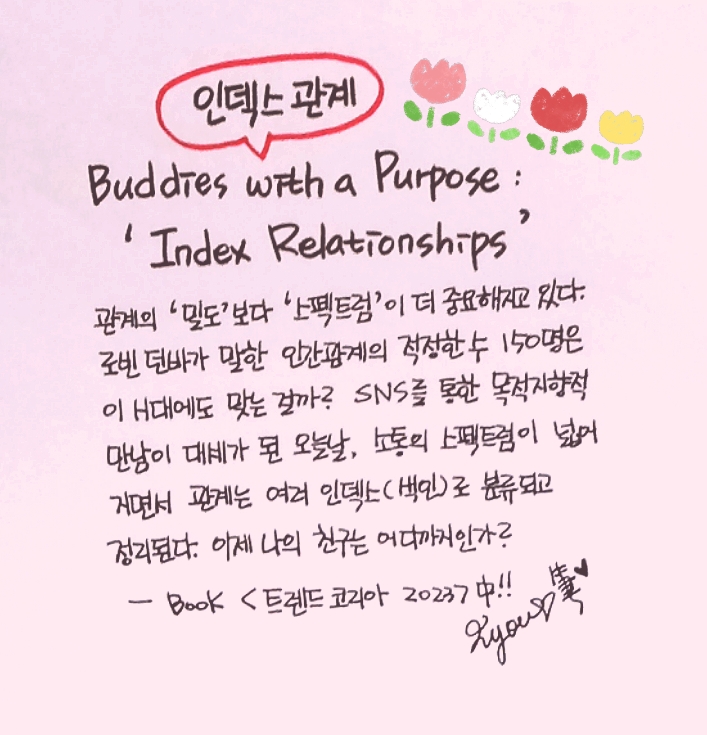 인덱스 관계
Buddies with a Purpose :
'Index Relationships'
관계의 '밀도'보다 '스펙트럼'이 더 중요해지고 있다.
로빈 던바가 말한 인간관계의 적정한 수 150명은
이 시대에도 맞는 걸까? SNS를 통한 목적지향적
만남이 대세가 된 오늘날, 소통의 스펙트럼이 넓어
지면서 관계는 여러 인덱스(색인)로 분류되고
정리된다. 이제 나의 친구는 어디까지인가?
- Book <트렌드 코리아 2023> 中!!